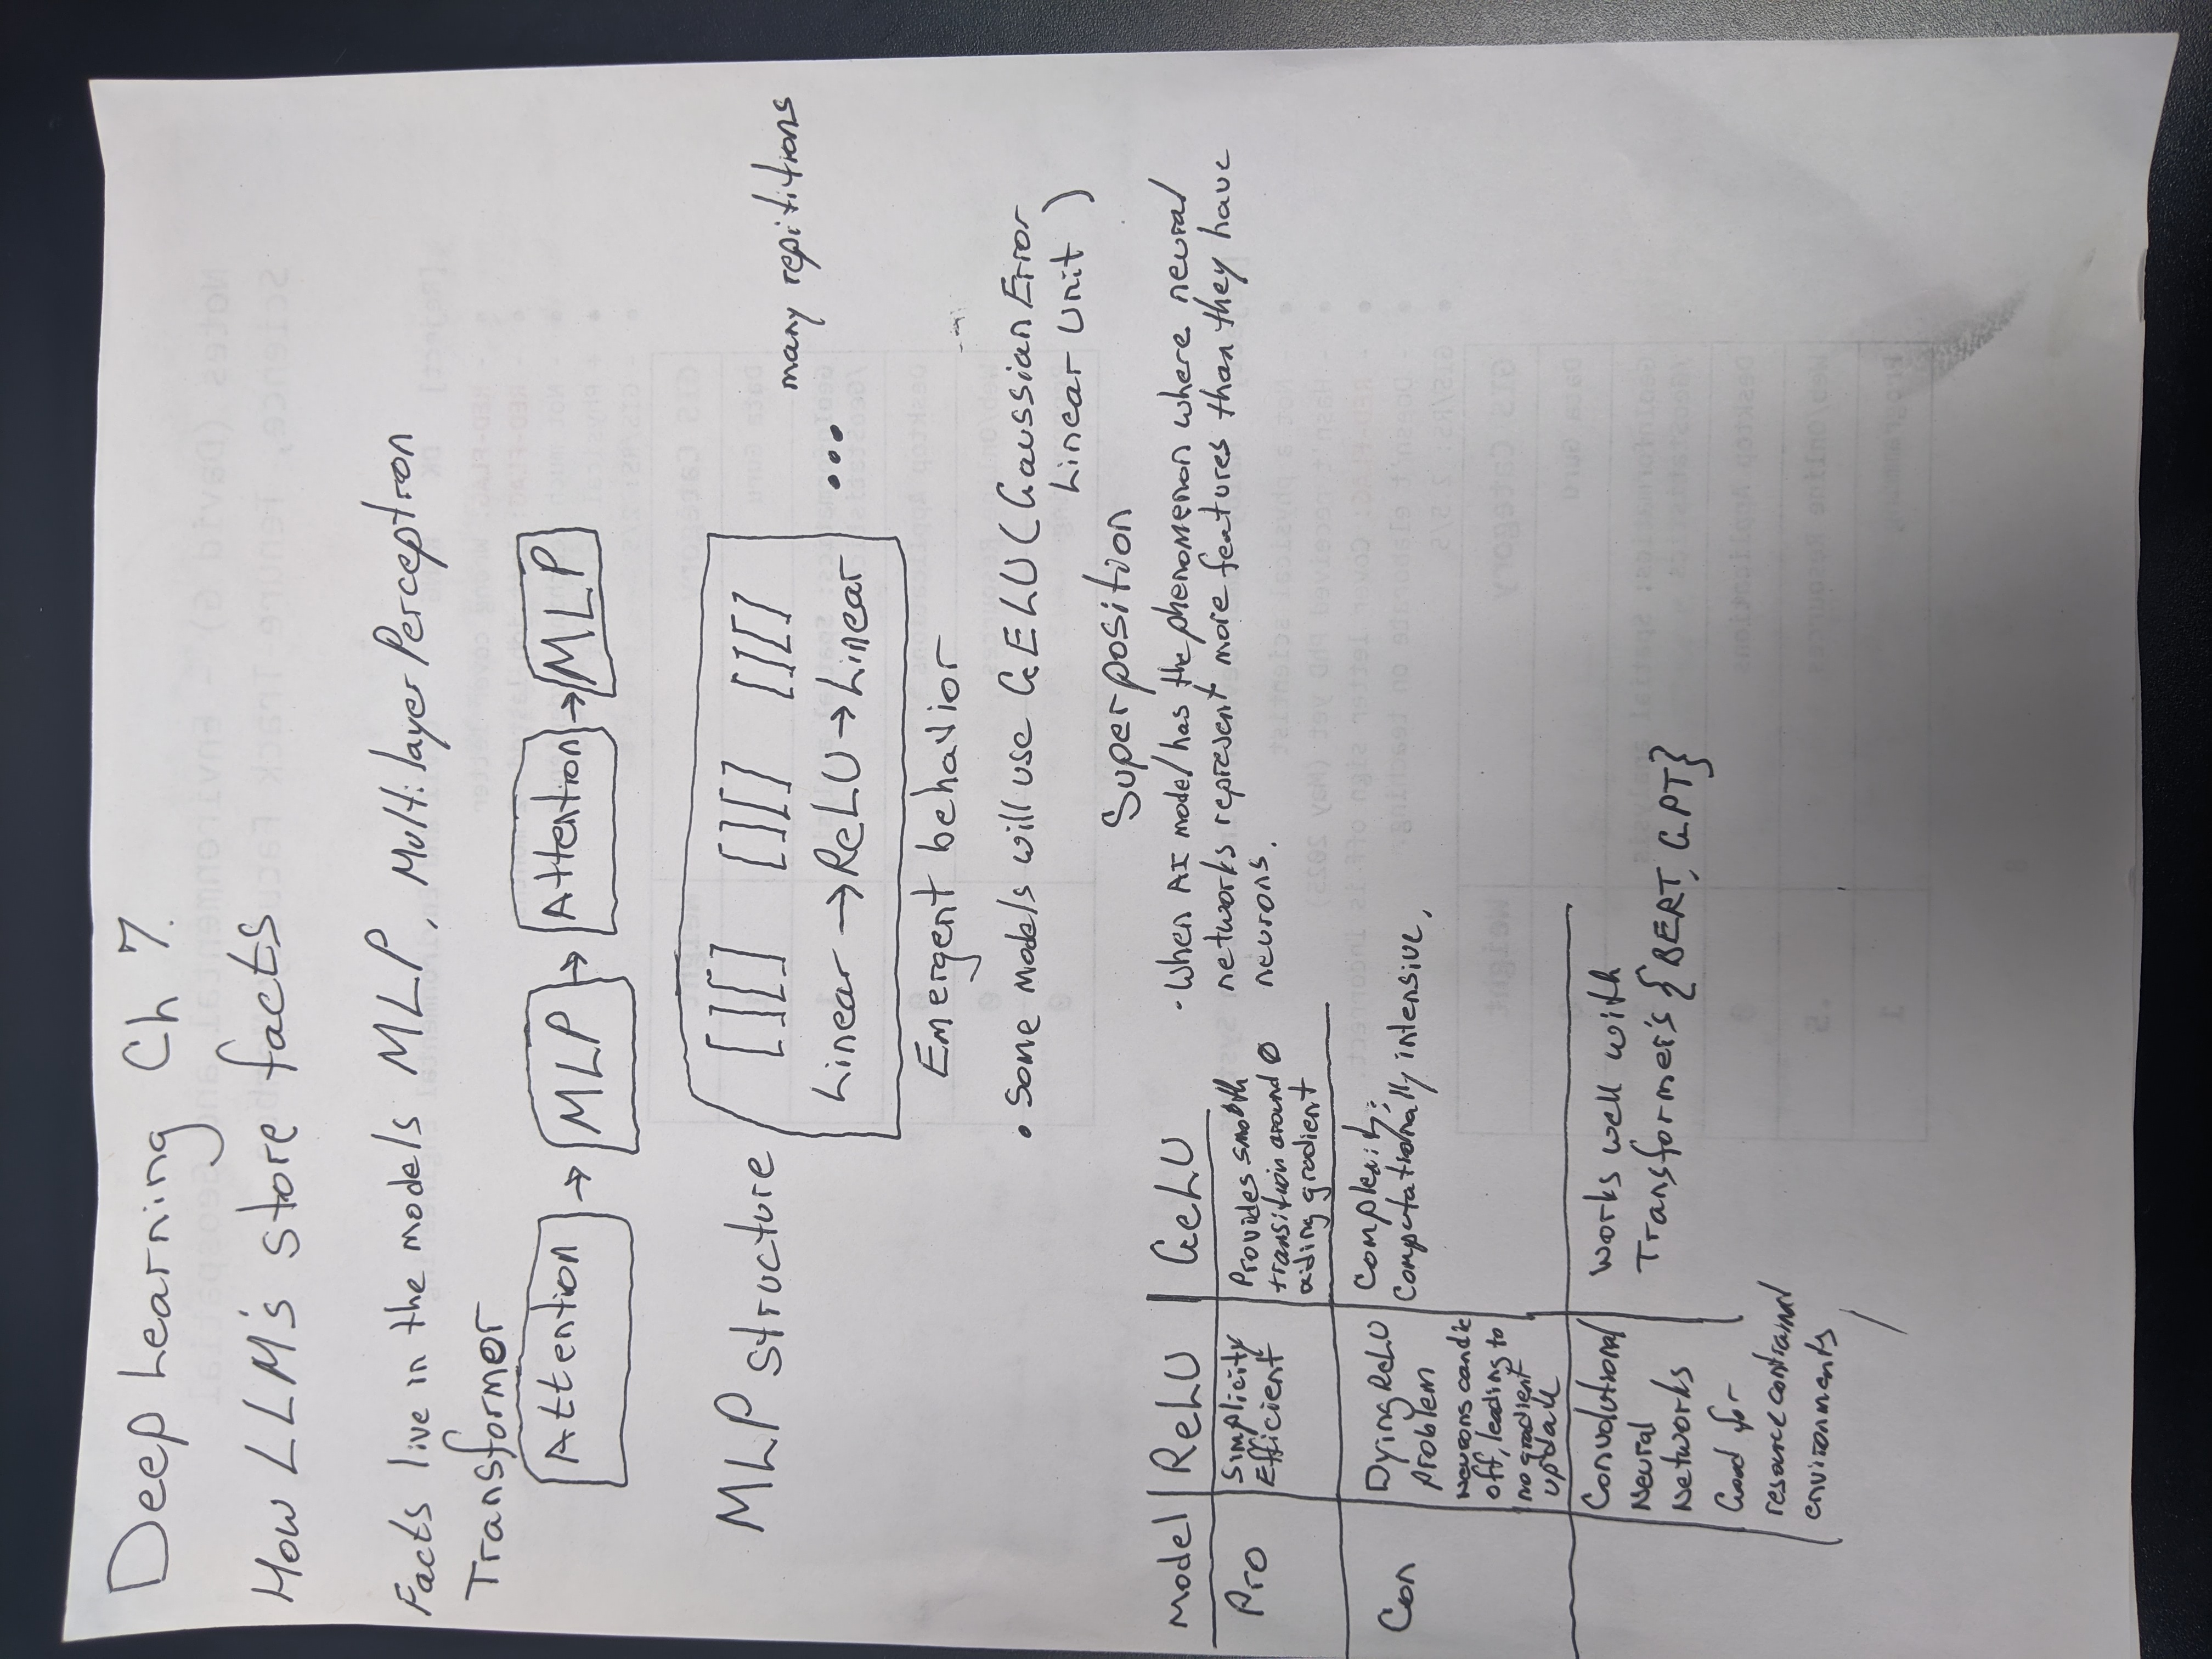 Deep Learning Ch 7.
How LLM's store facts
Facts live in the models MLP, Multilayer Perceptron
Transformer
Attention → MLP → Attention → MLP
MLP structure
[][] [][] [][]
many repititions
Linear → ReLU → Linear ...
Emergent behavior
• Some models will use GELU (Gaussian Error
Linear Unit )
Superposition
· When AI model has the phenomenon where neural
networks represent more features than they have
neurons.
Model ReLU GeLU
Pro
Simplicity
Efficient
Provides smooth
transition around 0
aiding gradient
Con
Dying ReLU
Problem
Neurons can die
off, leading to
no gradient
update
Complexity;
Computationally intensive,
Convolutional
Neural
Networks
Good for
resource contrained
environments
Works well with
Transformer's {BERT, GPT}